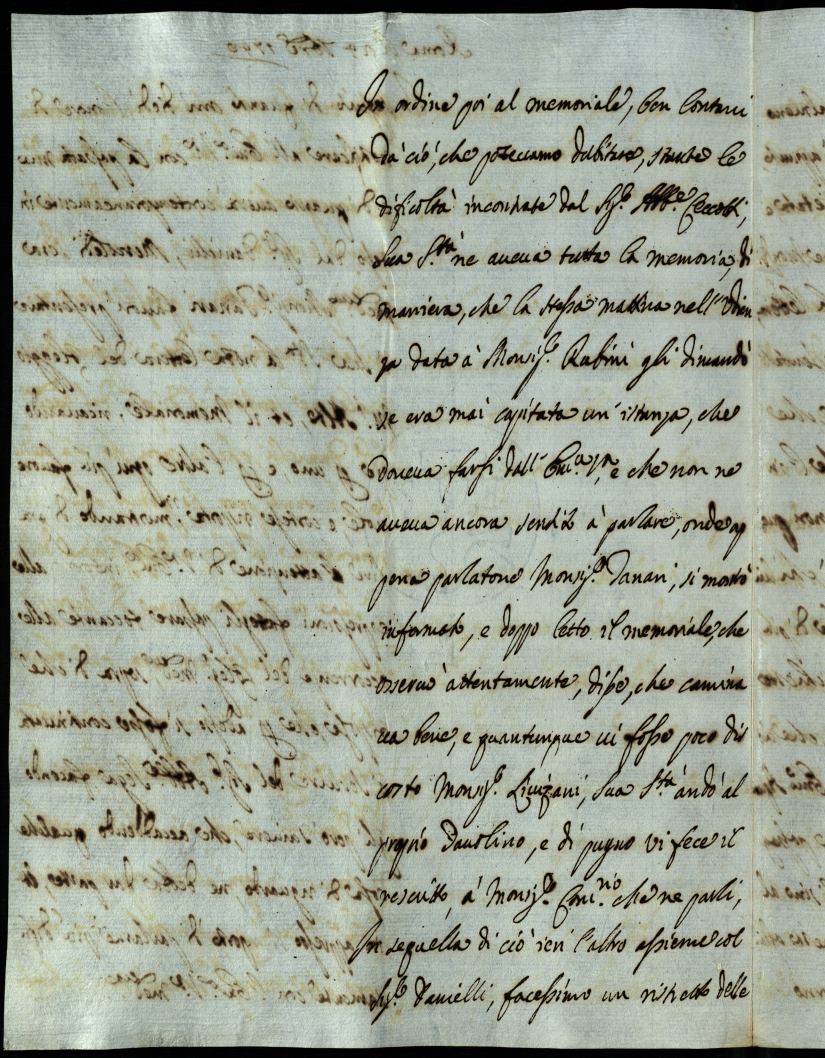 In ordine poi al memoriale, ben lontani
da ciò, che potevamo dubitare, stante le
dificoltà incontrate dal Sig.e Abb.e Ceccotti,
Sua S.tà ne aveva tutta la memoria, di
maniera, che la stessa mattina nell'Udien
za data à Monsig.e Rubini gli dimandò
se era mai capitata un'istanza, che
doveva farsi dall' e che non ne
aveva ancora sentito à parlare, onde ap
pena parlatone Monsig.e Tanari, si mostrò
informato, e doppo letto il memoriale, che
osservò attentamente, disse, che camina
va bene, e quantunque vi fosse poco dis
costo Monsig.e Livizani, Sua S.tà andò al
proprio Tavolino, e di pugno vi fece il
rescritto, à Monsig.e che ne parli,
In sequella di ciò ieri l'altro assieme col
Sig.e Danielli, facessimo un ristretto delle